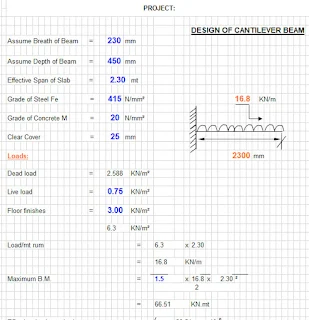 PROJECT:
DESIGN OF CANTILEVER BEAM
Assume Breath of Beam = 230 mm
Assume Depth of Beam = 450 mm
Effective Span of Slab = 2.30 mt
Grade of Steel Fe = 415 N/mm²
16.8 KN/m
Grade of Concrete M = 20 N/mm²
Clear Cover = 25 mm
Loads:
2300 mm
Dead load = 2.588 KN/m²
Live load = 0.75 KN/m²
Floor finishes = 3.00 KN/m²
6.3 KN/m²
Load/mt rum = 6.3 x 2.30
= 16.8 KN/m
Maximum B.M. = 1.5 x 16.8 x 2.30 ²
2
= 66.51 KN.mt